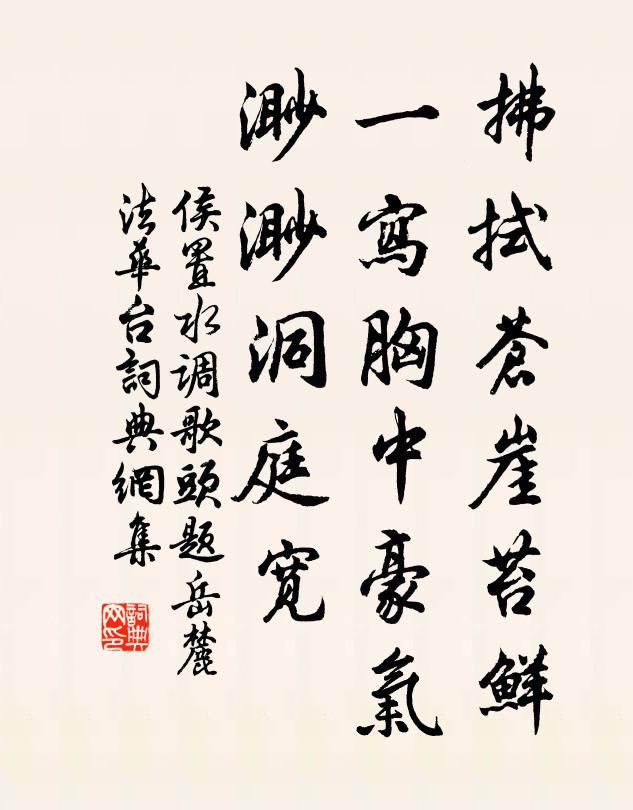 拂拭苍崖苔鲜
一寫胸中豪氣
渺渺洞庭寬
侯置水调歌頭题岳麓
法華台詞典網集
詞典網印